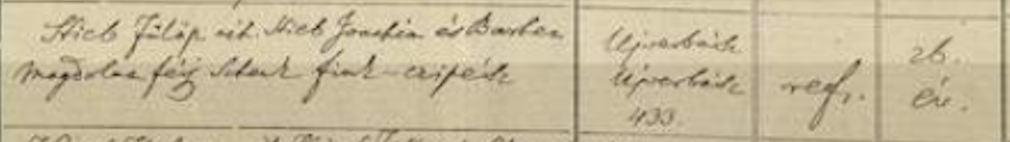 Stieb Fülöp néh. Stieb Joachim és Barbara
Magdolna férj Schenk fiuk - czipész
Ujverbász
Ujverbász
433.
ref.
26.
év.